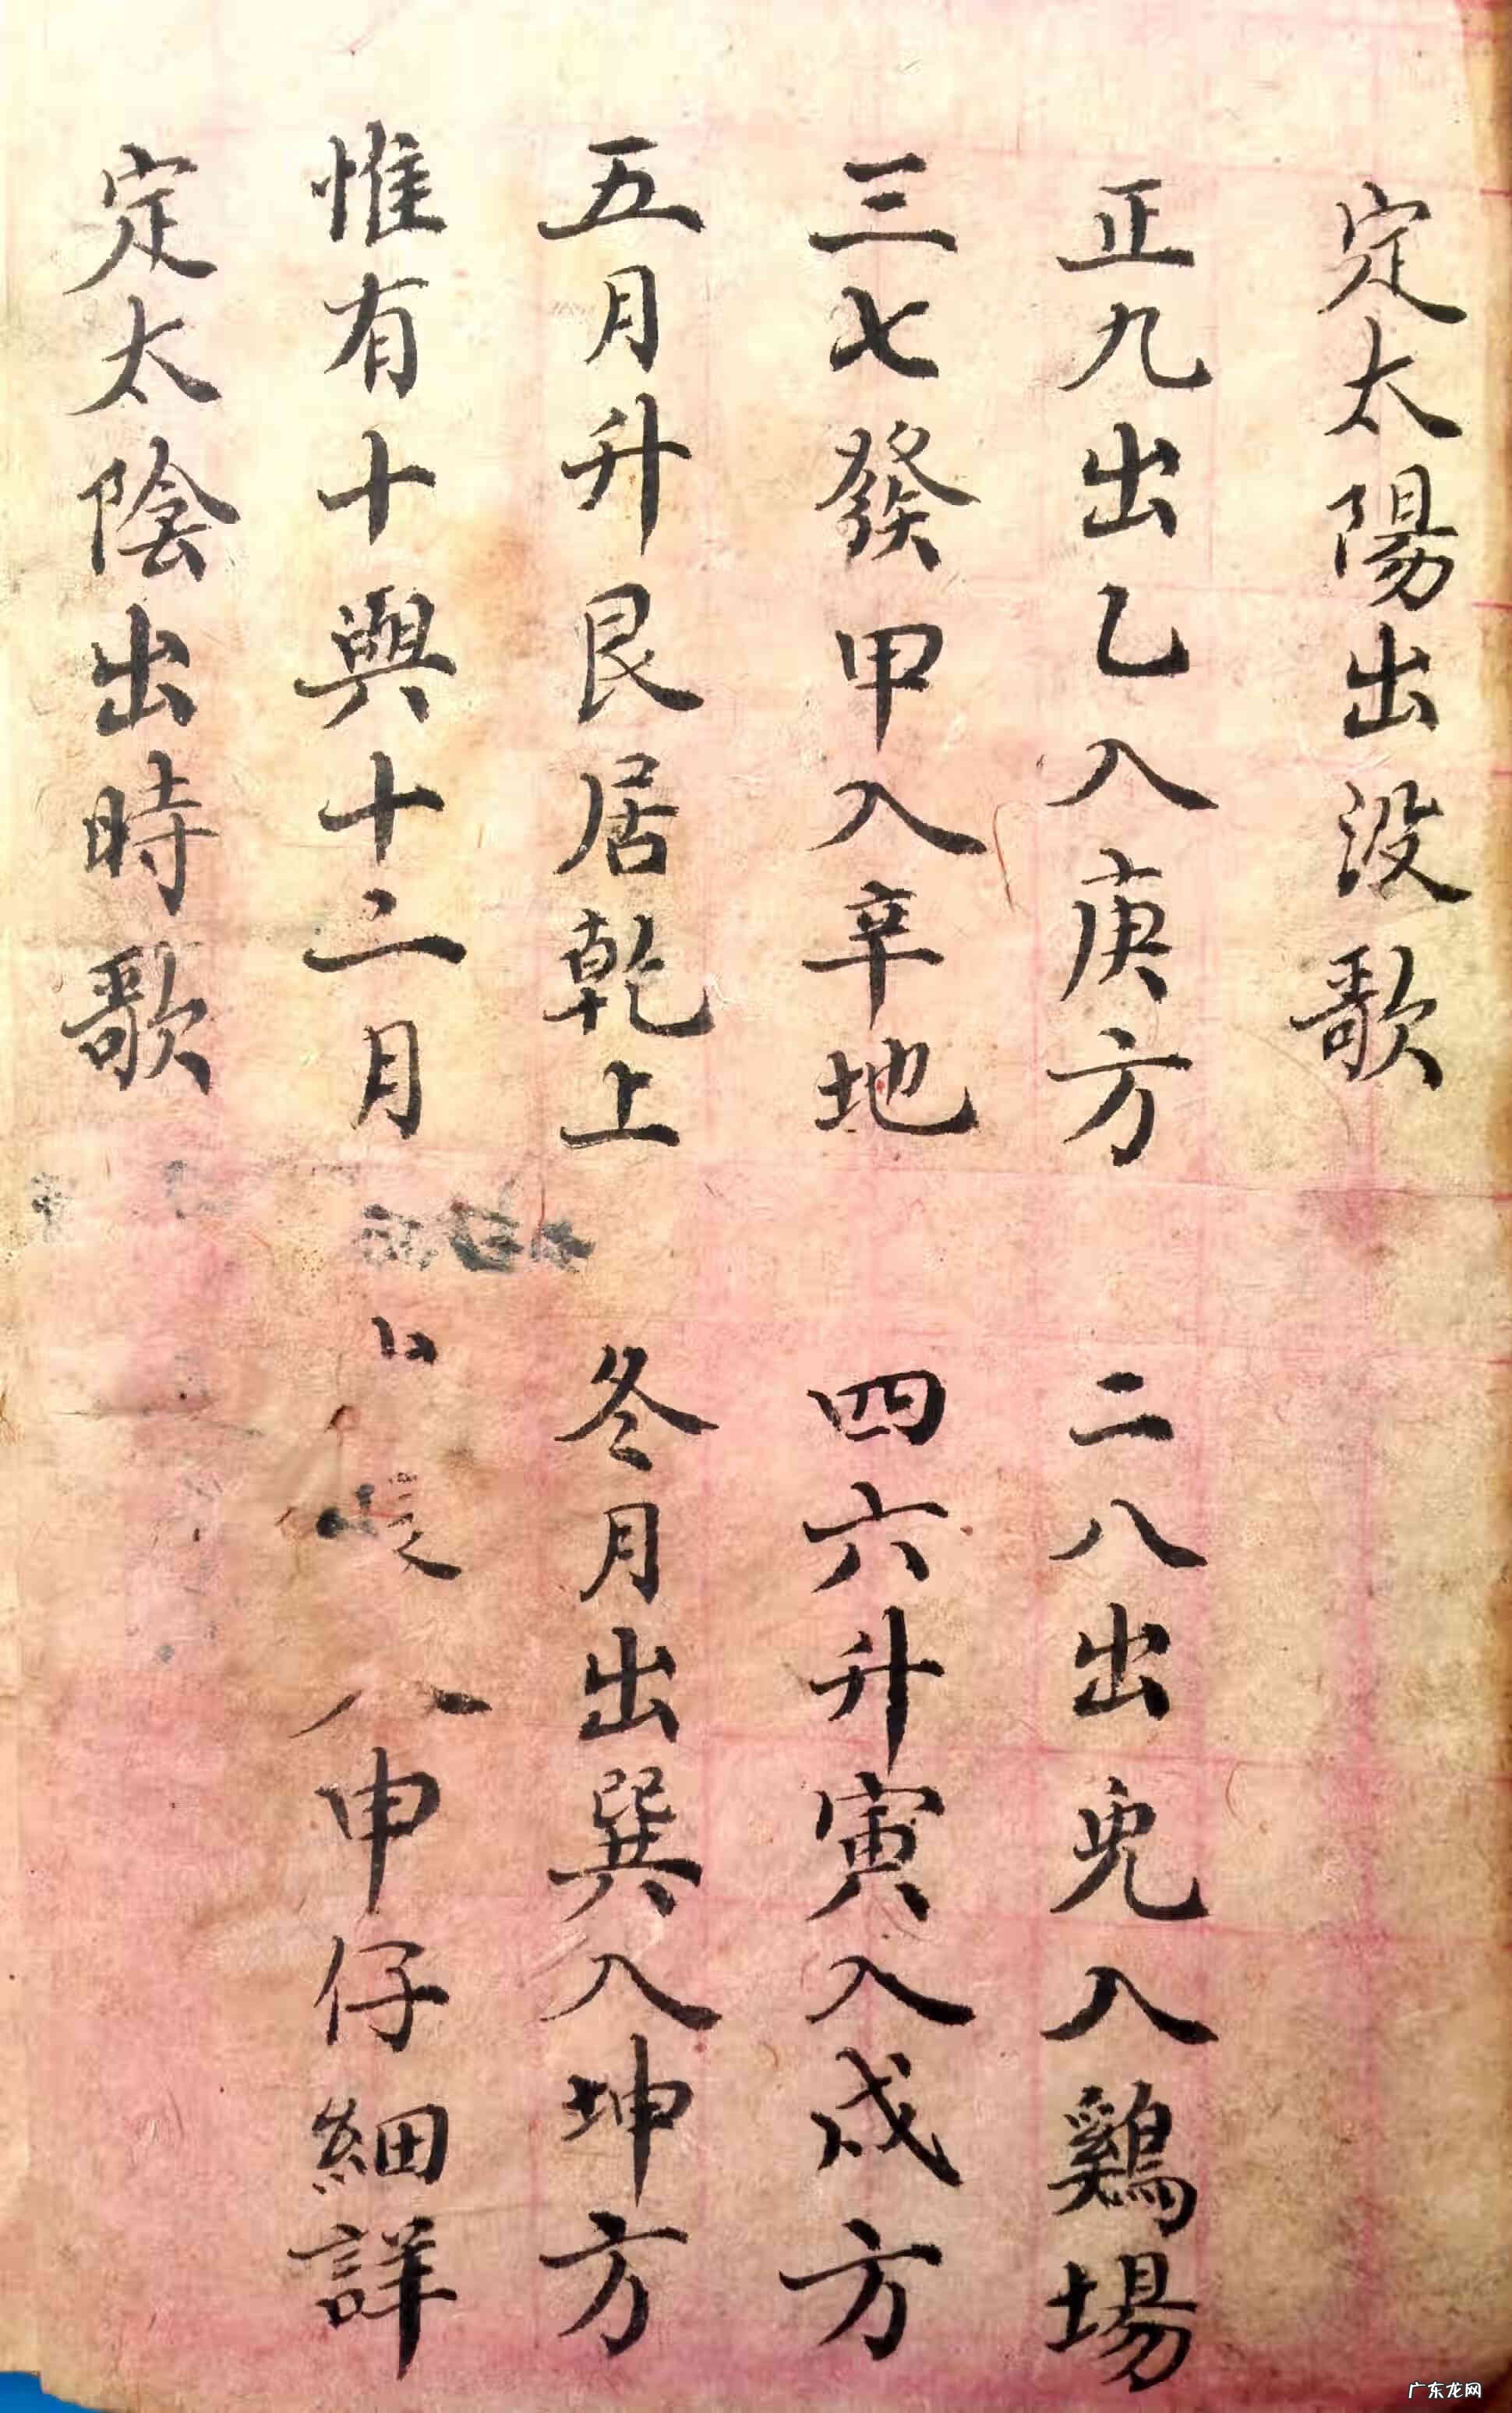 定太陽出没歌
正九出乙入庚方 二八出兎入鷄場
三七發甲入辛地 四六升寅入戍方
五月升艮居乾上 冬月出巽入坤方
惟有十與十二月 入申仔細詳
定太陰出時歌
广东龙网